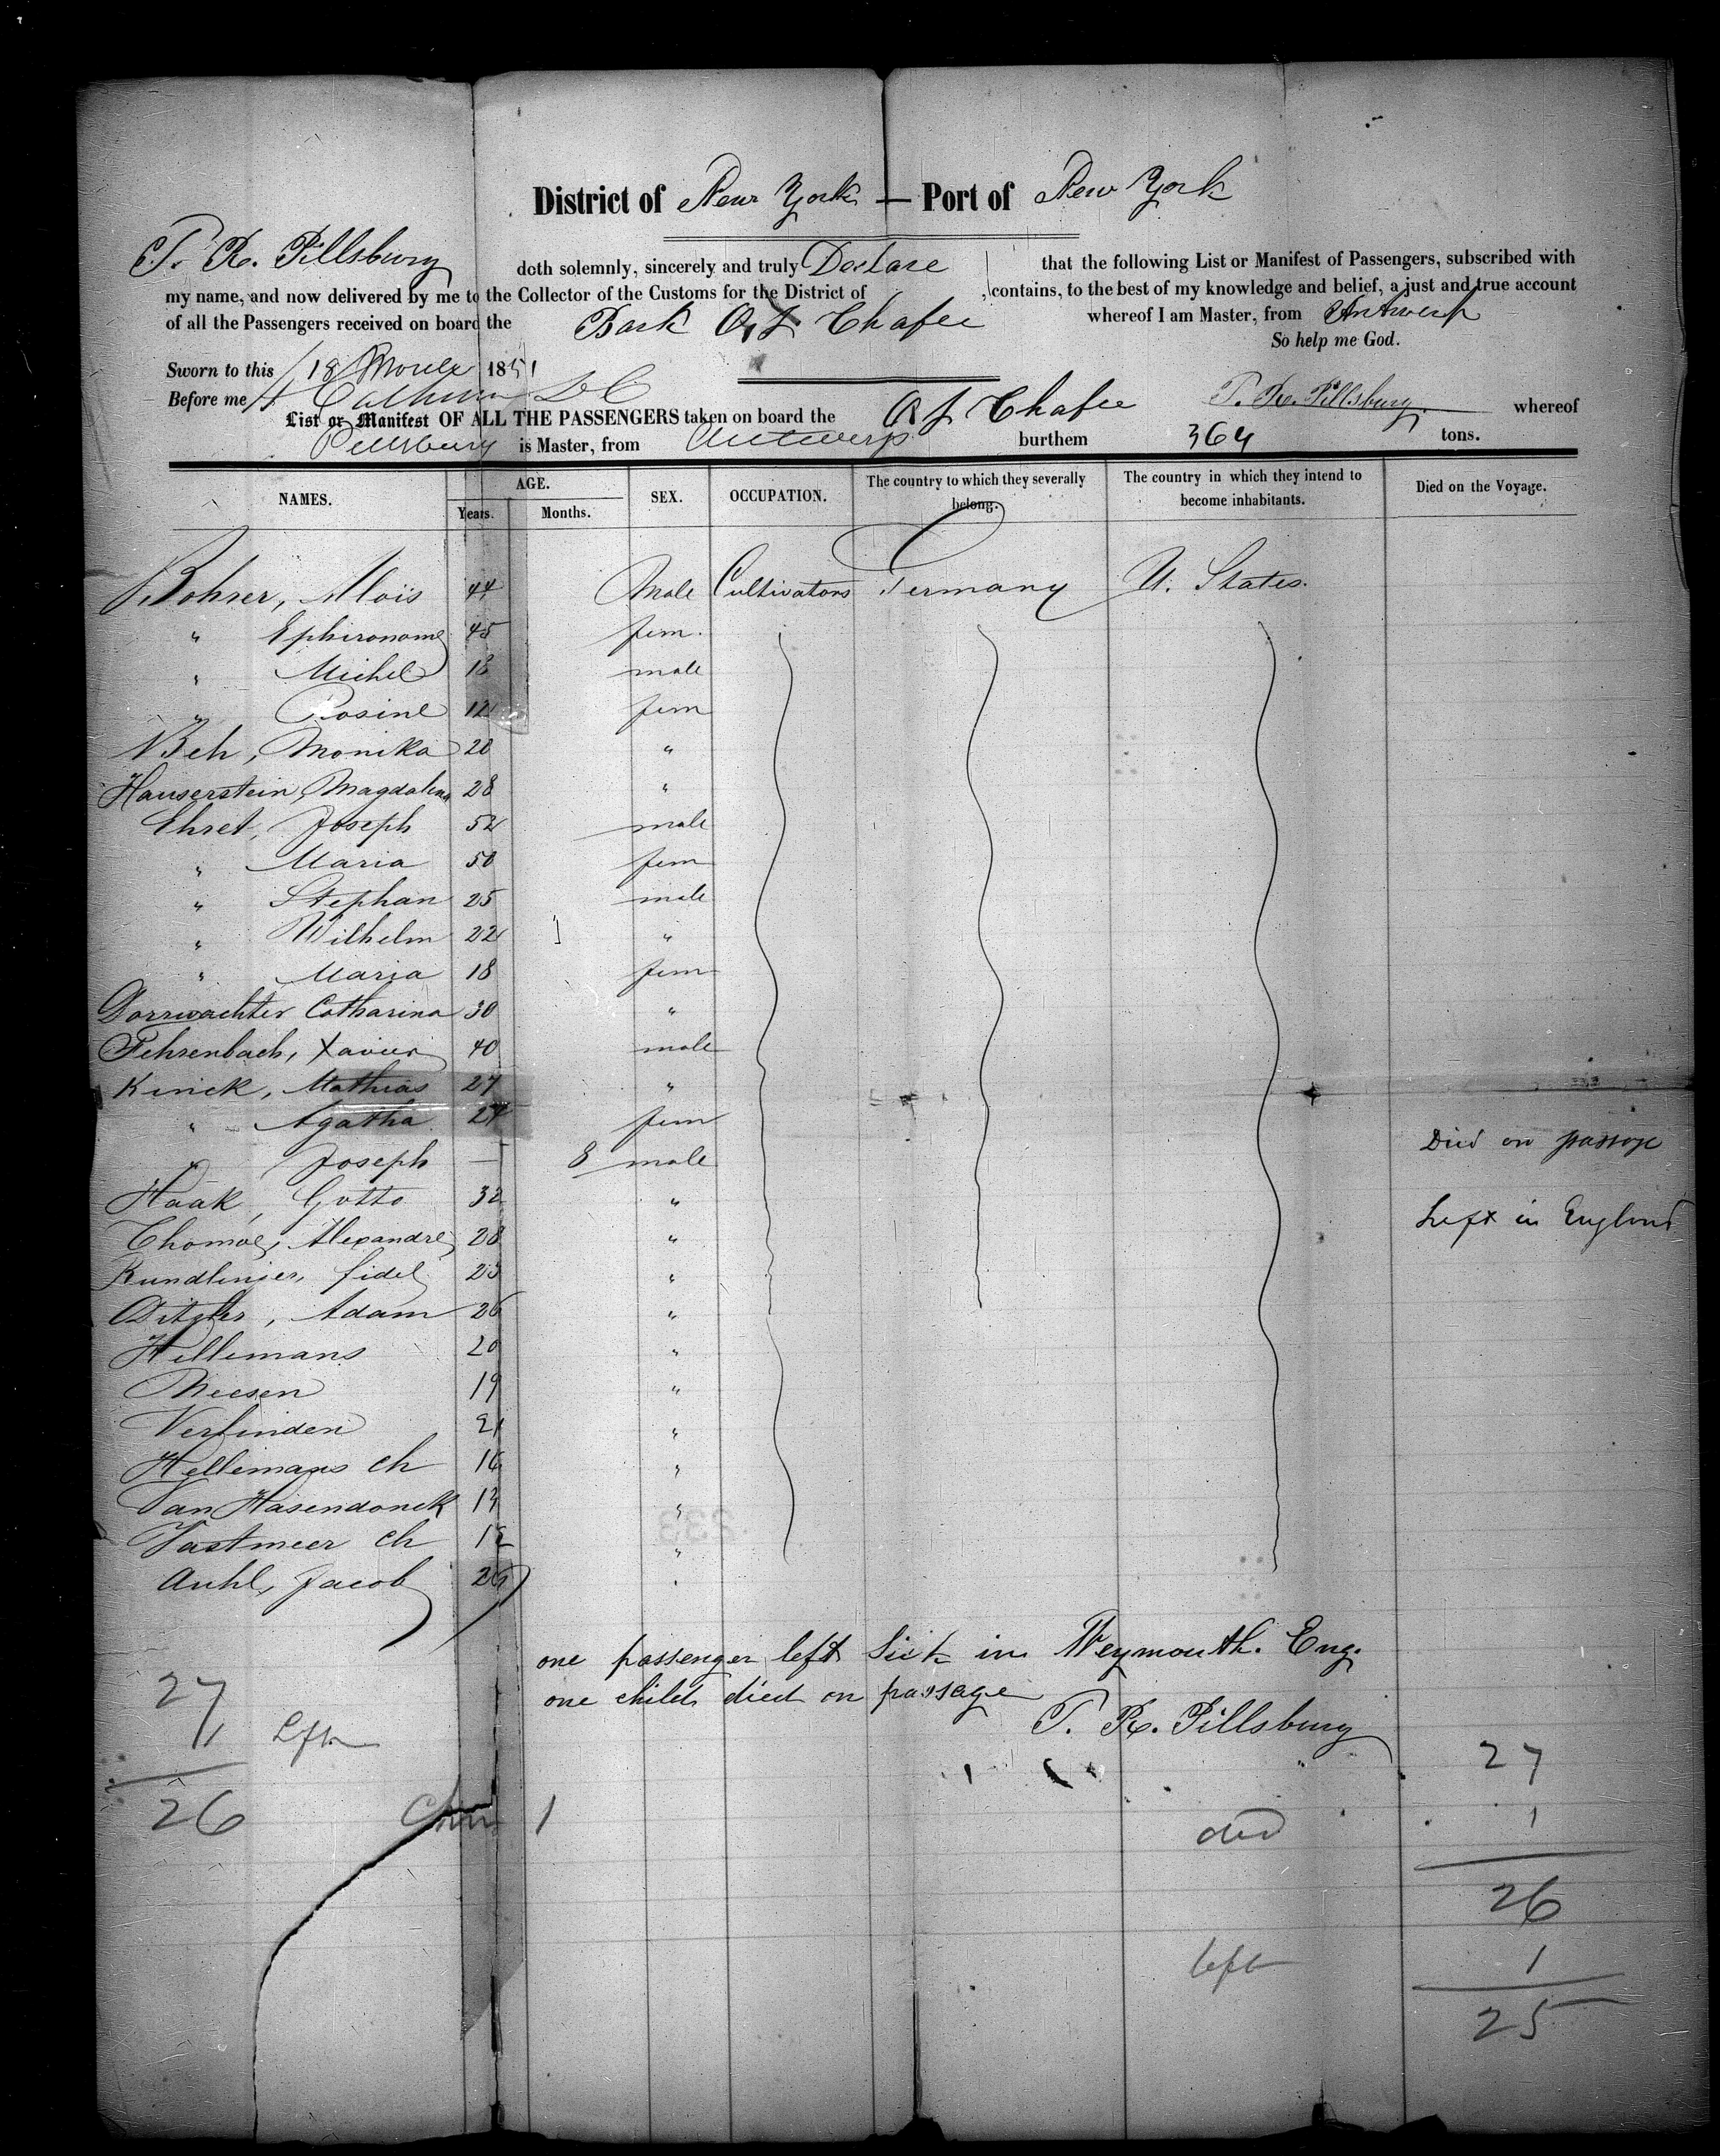 District of New York — Port of New York
T. R. Pillsbury doth solemnly, sincerely and truly Declare that the following List or Manifest of Passengers, subscribed with
my name, and now delivered by me to the Collector of the Customs for the District of , contains, to the best of my knowledge and belief, a just and true account
of all the Passengers received on board the Bark Chafee whereof I am Master, from Antwerp
So help me God.
Sworn to this 18 1851
Before me T. R. Pillsbury
List or Manifest OF ALL THE PASSENGERS taken on board the Chafee whereof
Pillsbury is Master, from Antwerp burthem 364 tons.
NAMES. AGE. SEX. OCCUPATION. The country to which they severally belong. The country in which they intend to become inhabitants. Died on the Voyage.
Years. Months.
Bohrer, Alois 44 Male Cultivators Germany U. States.
" 45 fem.
" Michel 18 male
" Rosine 12 fem
Beh, Monika 20 "
Hauserstein, Magdalena 28 "
Ehret, Joseph 52 male
" Maria 50 fem
" Stephan 25 male
" Wilhelm 22 "
" Maria 18 fem
Dorrwachter Catharina 30 "
Fehrenbach, Xavier 40 male
Kinek, Mathias 27 "
" Agatha 27 fem
" Joseph — 8 male Died on passage
Haak, Gotto 32 " Left in England
Thomae, Alexandre 28 "
fidel 23 "
Adam 26 "
Hellemans 20 "
Meesen 19 "
Verlinden 21 "
Hellemans ch 16 "
Van Hasendonck 13 "
Vastmeer ch 12 "
Auhl, Jacob 26 "
one passenger left Sick in Weymouth. Eng.
one child died on passage
T. R. Pillsbury
27
1 Left
26
1
27
died 1
26
left 1
25